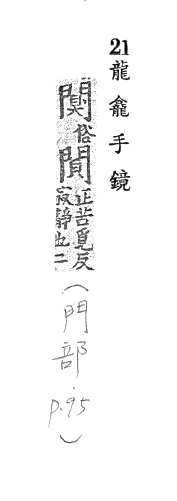 21龍龕手鏡
俗闃正苦覓反
寂靜也二
(門部.p.95)